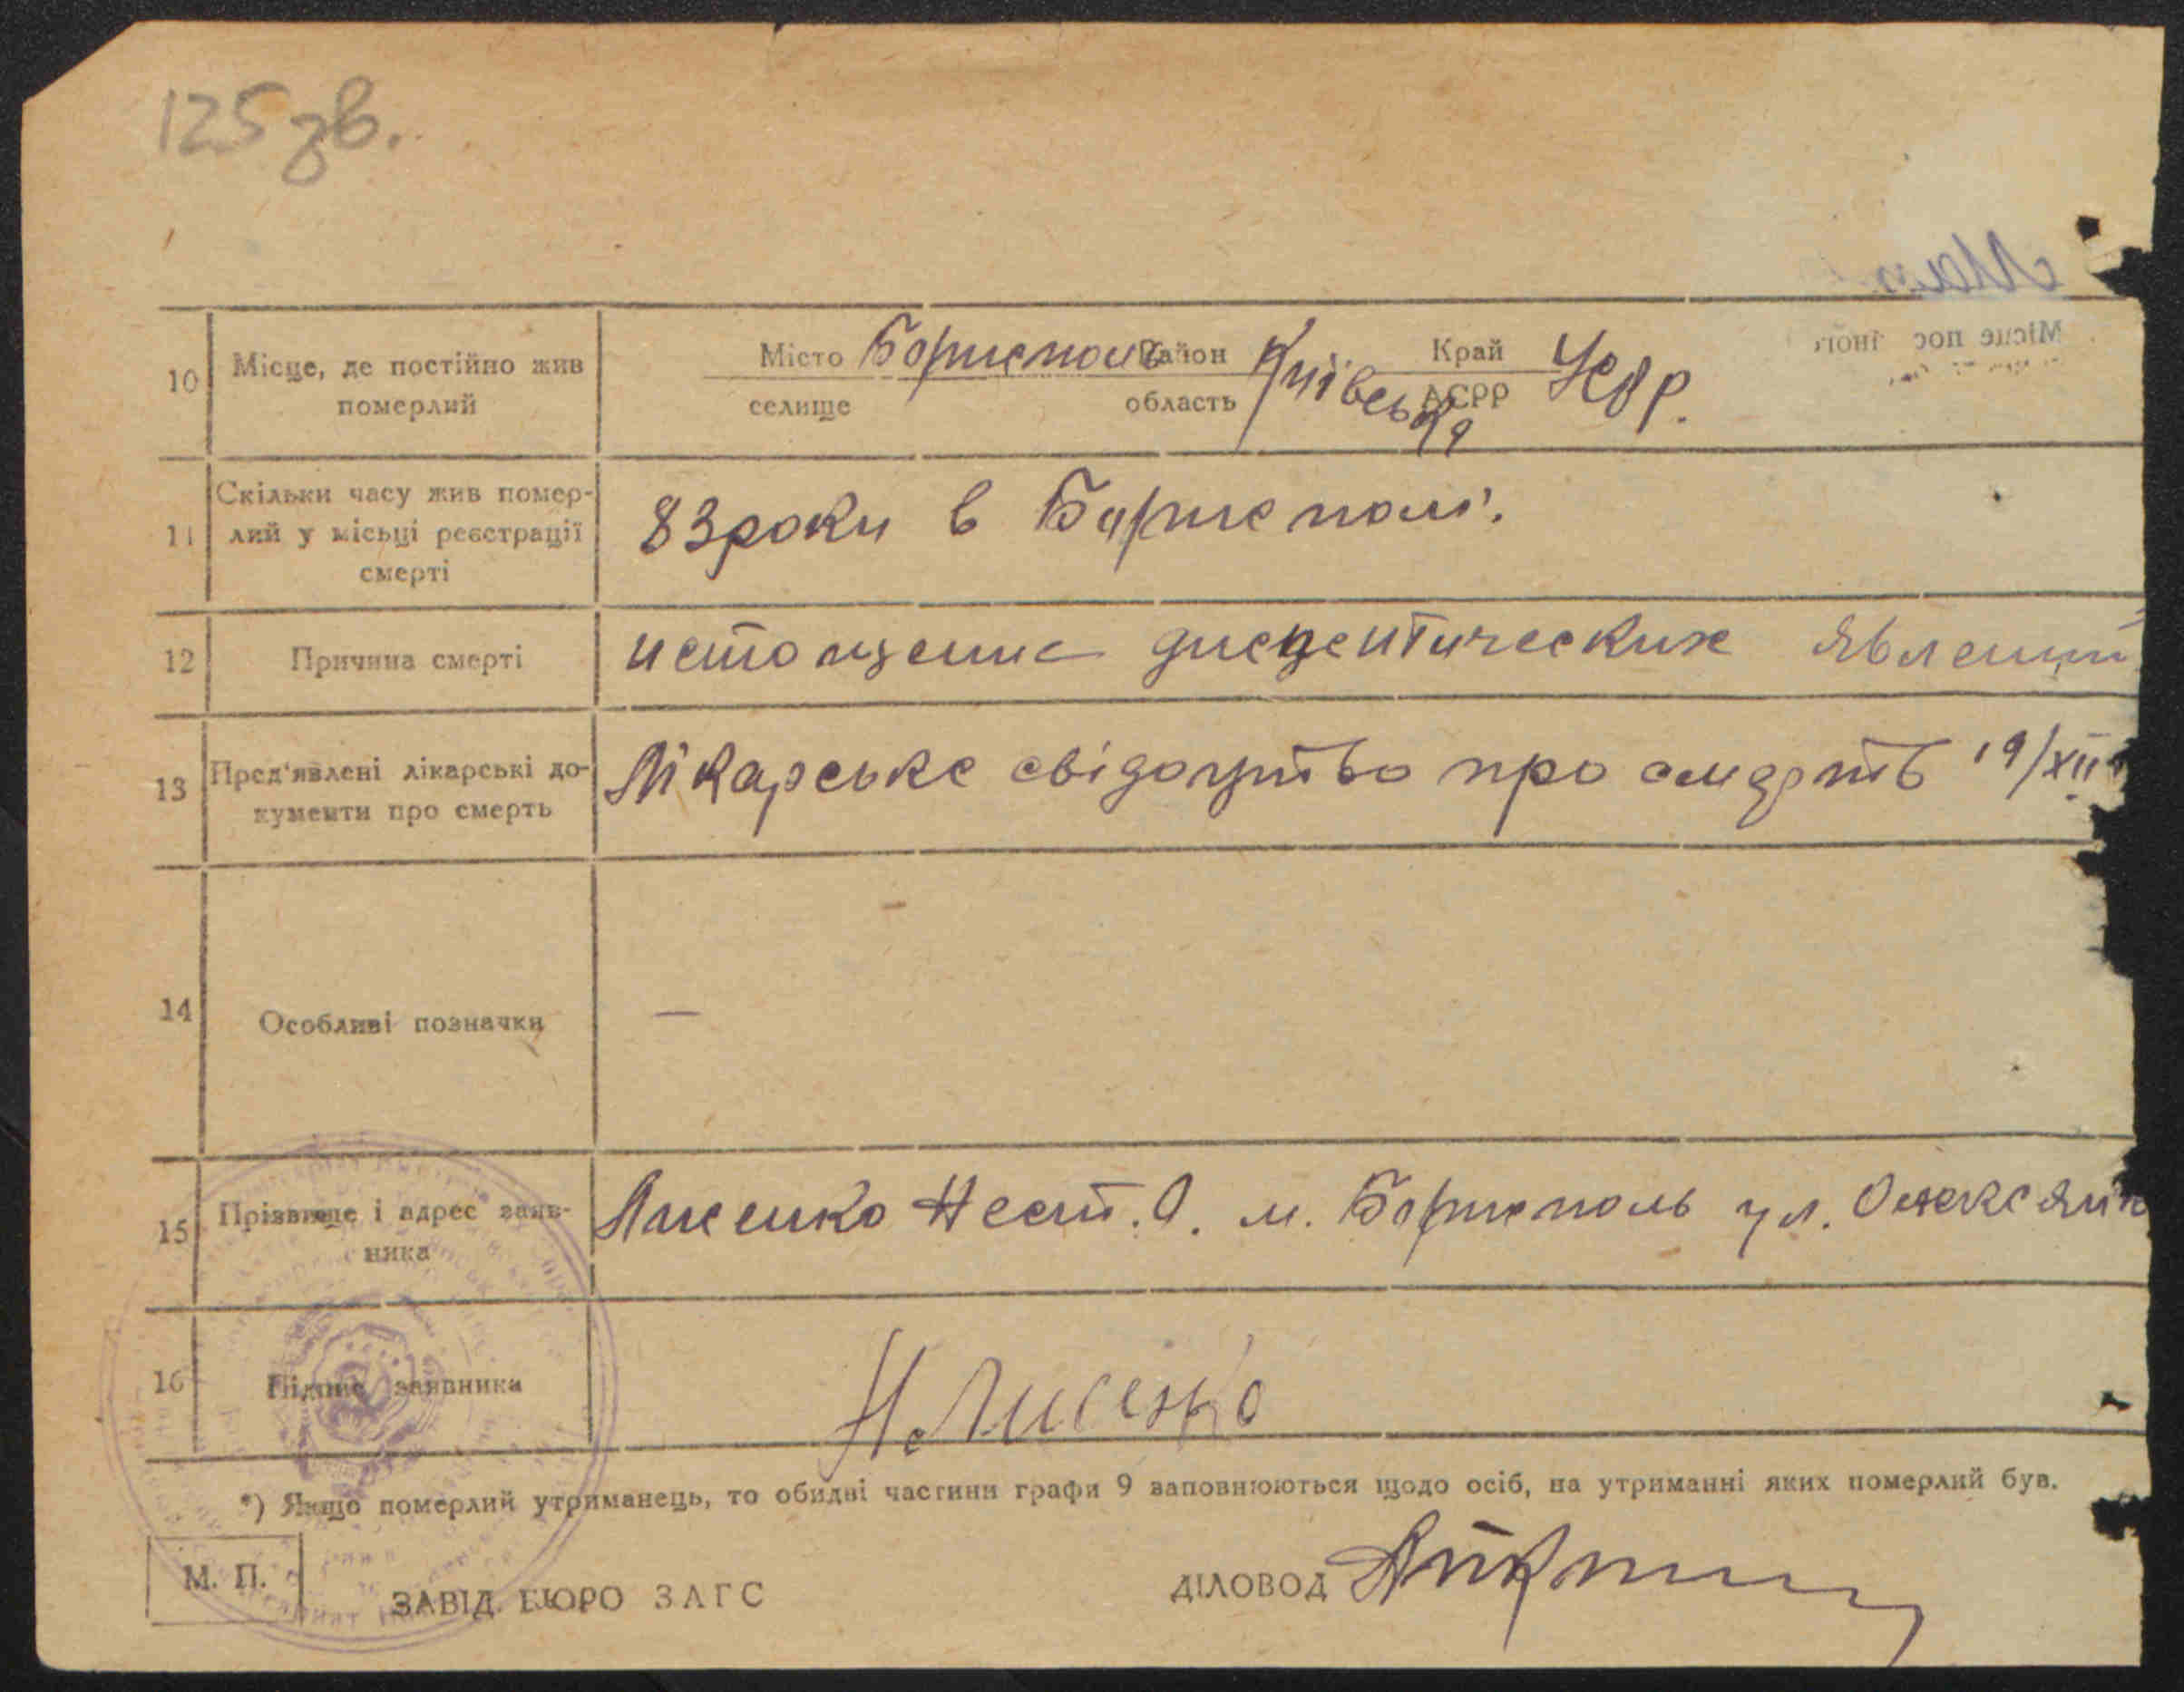 125 зв.
10 Місце, де постійно жив померлий
Місто Бориспіль Район Київська Край УССР.
селище область АСРР
11 Скільки часу жив помер-
лий у місьці реєстрації
смерті
83 роки в Борисполі.
12 Причина смерті
истощение явлений
13 Пред'явлені лікарські до-
кументи про смерть
Лікарське свідоцтво про смерть 19/XII
14 Особливі позначки
—
15 Прізвище і адрес заяв-
ника
Лисенко Нест. О. м. Бориспопь ул.
16 Підпис заявника
Н. Лисенко
*) Якщо померлий утриманець, то обидві частини графи 9 заповнюються щодо осіб, на утриманні яких померлий був.
М. П.
ЗАВІД. БЮРО ЗАГС
ДІЛОВОД